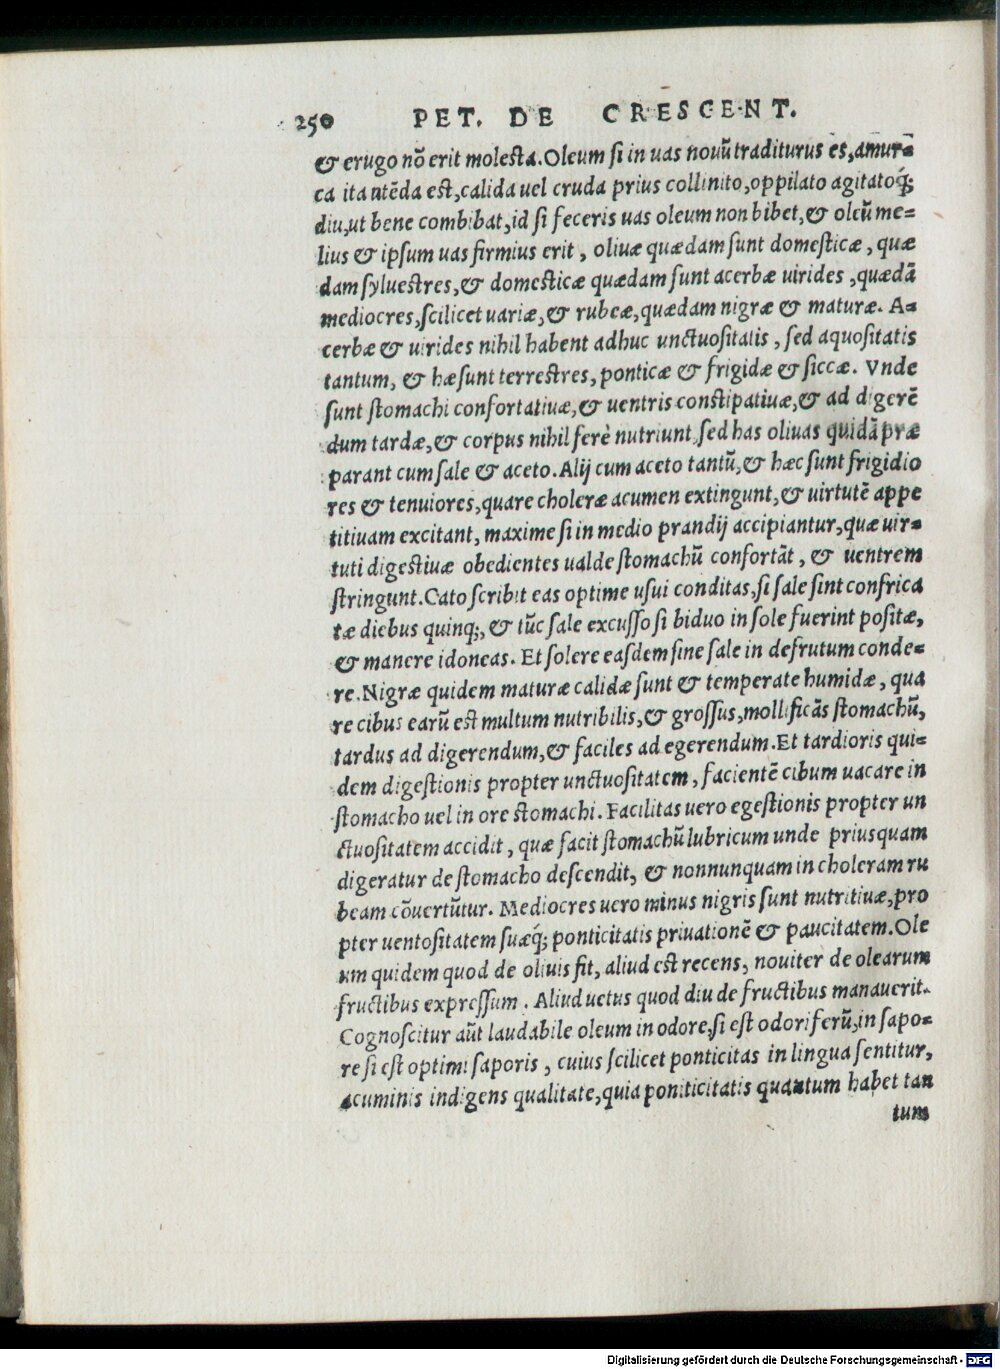 250 PET. DE CRESCENT.
& erugo nō erit molesta. Oleum si in uas nouū traditurus es, amur=
ca ita ntēda est, calida uel cruda prius collinito, oppilato agitatoq́;
diu, ut bene combibat, id si feceris uas oleum non bibet, & oleū me=
lius & ipsum uas firmius erit, oliuæ quædam sunt domesticæ, quæ
dam syluestres, & domesticæ quædam sunt acerbæ uirides, quædā
mediocres, scilicet uariæ, & rubeæ, quædam nigræ & maturæ. A=
cerbæ & uirides nihil habent adhuc unctuositatis, sed aquositatis
tantum, & hæ sunt terrestres, ponticæ & frigidæ & siccæ. Vnde
sunt stomachi confortatiuæ, & uentris constipatiuæ, & ad digerē
dum tardæ, & corpus nihil ferè nutriunt, sed has oliuas quidā præ
parant cum sale & aceto. Alij cum aceto tantū, & hæc sunt frigidio
res & tenuiores, quare choleræ acumen extingunt, & uirtutē appe
titiuam excitant, maxime si in medio prandij accipiantur, quæ uir=
tuti digestiuæ obedientes ualde stomachū confortāt, & uentrem
stringunt. Cato scribit eas optime usui conditas, si sale sint confrica
tæ diebus quinq;, & tūc sale excusso si biduo in sole fuerint positæ,
& manere idoneas. Et solere easdem sine sale in defrutum conde=
re. Nigræ quidem maturæ calidæ sunt & temperate humidæ, qua
re cibus earū est multum nutribilis, & grossus, mollificās stomachū,
tardus ad digerendum, & faciles ad egerendum. Et tardioris qui=
dem digestionis propter unctuositatem, facientē cibum uacare in
stomacho uel in ore stomachi. Facilitas uero egestionis propter un
ctuositatem accidit, quæ facit stomachū lubricum unde priusquam
digeratur de stomacho descendit, & nonnunquam in choleram ru
beam cōuertūtur. Mediocres uero minus nigris sunt nutritiuæ, pro
pter uentositatem suæq́; ponticitatis priuationē & paucitatem. Ole
um quidem quod de oliuis fit, aliud est recens, nouiter de olearum
fructibus expressum. Aliud uetus quod diu de fructibus manauerit.
Cognoscitur aūt laudabile oleum in odore, si est odoriferū, in sapo=
re si est optimi saporis, cuius scilicet ponticitas in lingua sentitur,
acuminis indigens qualitate, quia poniticitatis quantum habet tan
tum
Digitalisierung gefördert durch die Deutsche Forschungsgemeinschaft - DFG